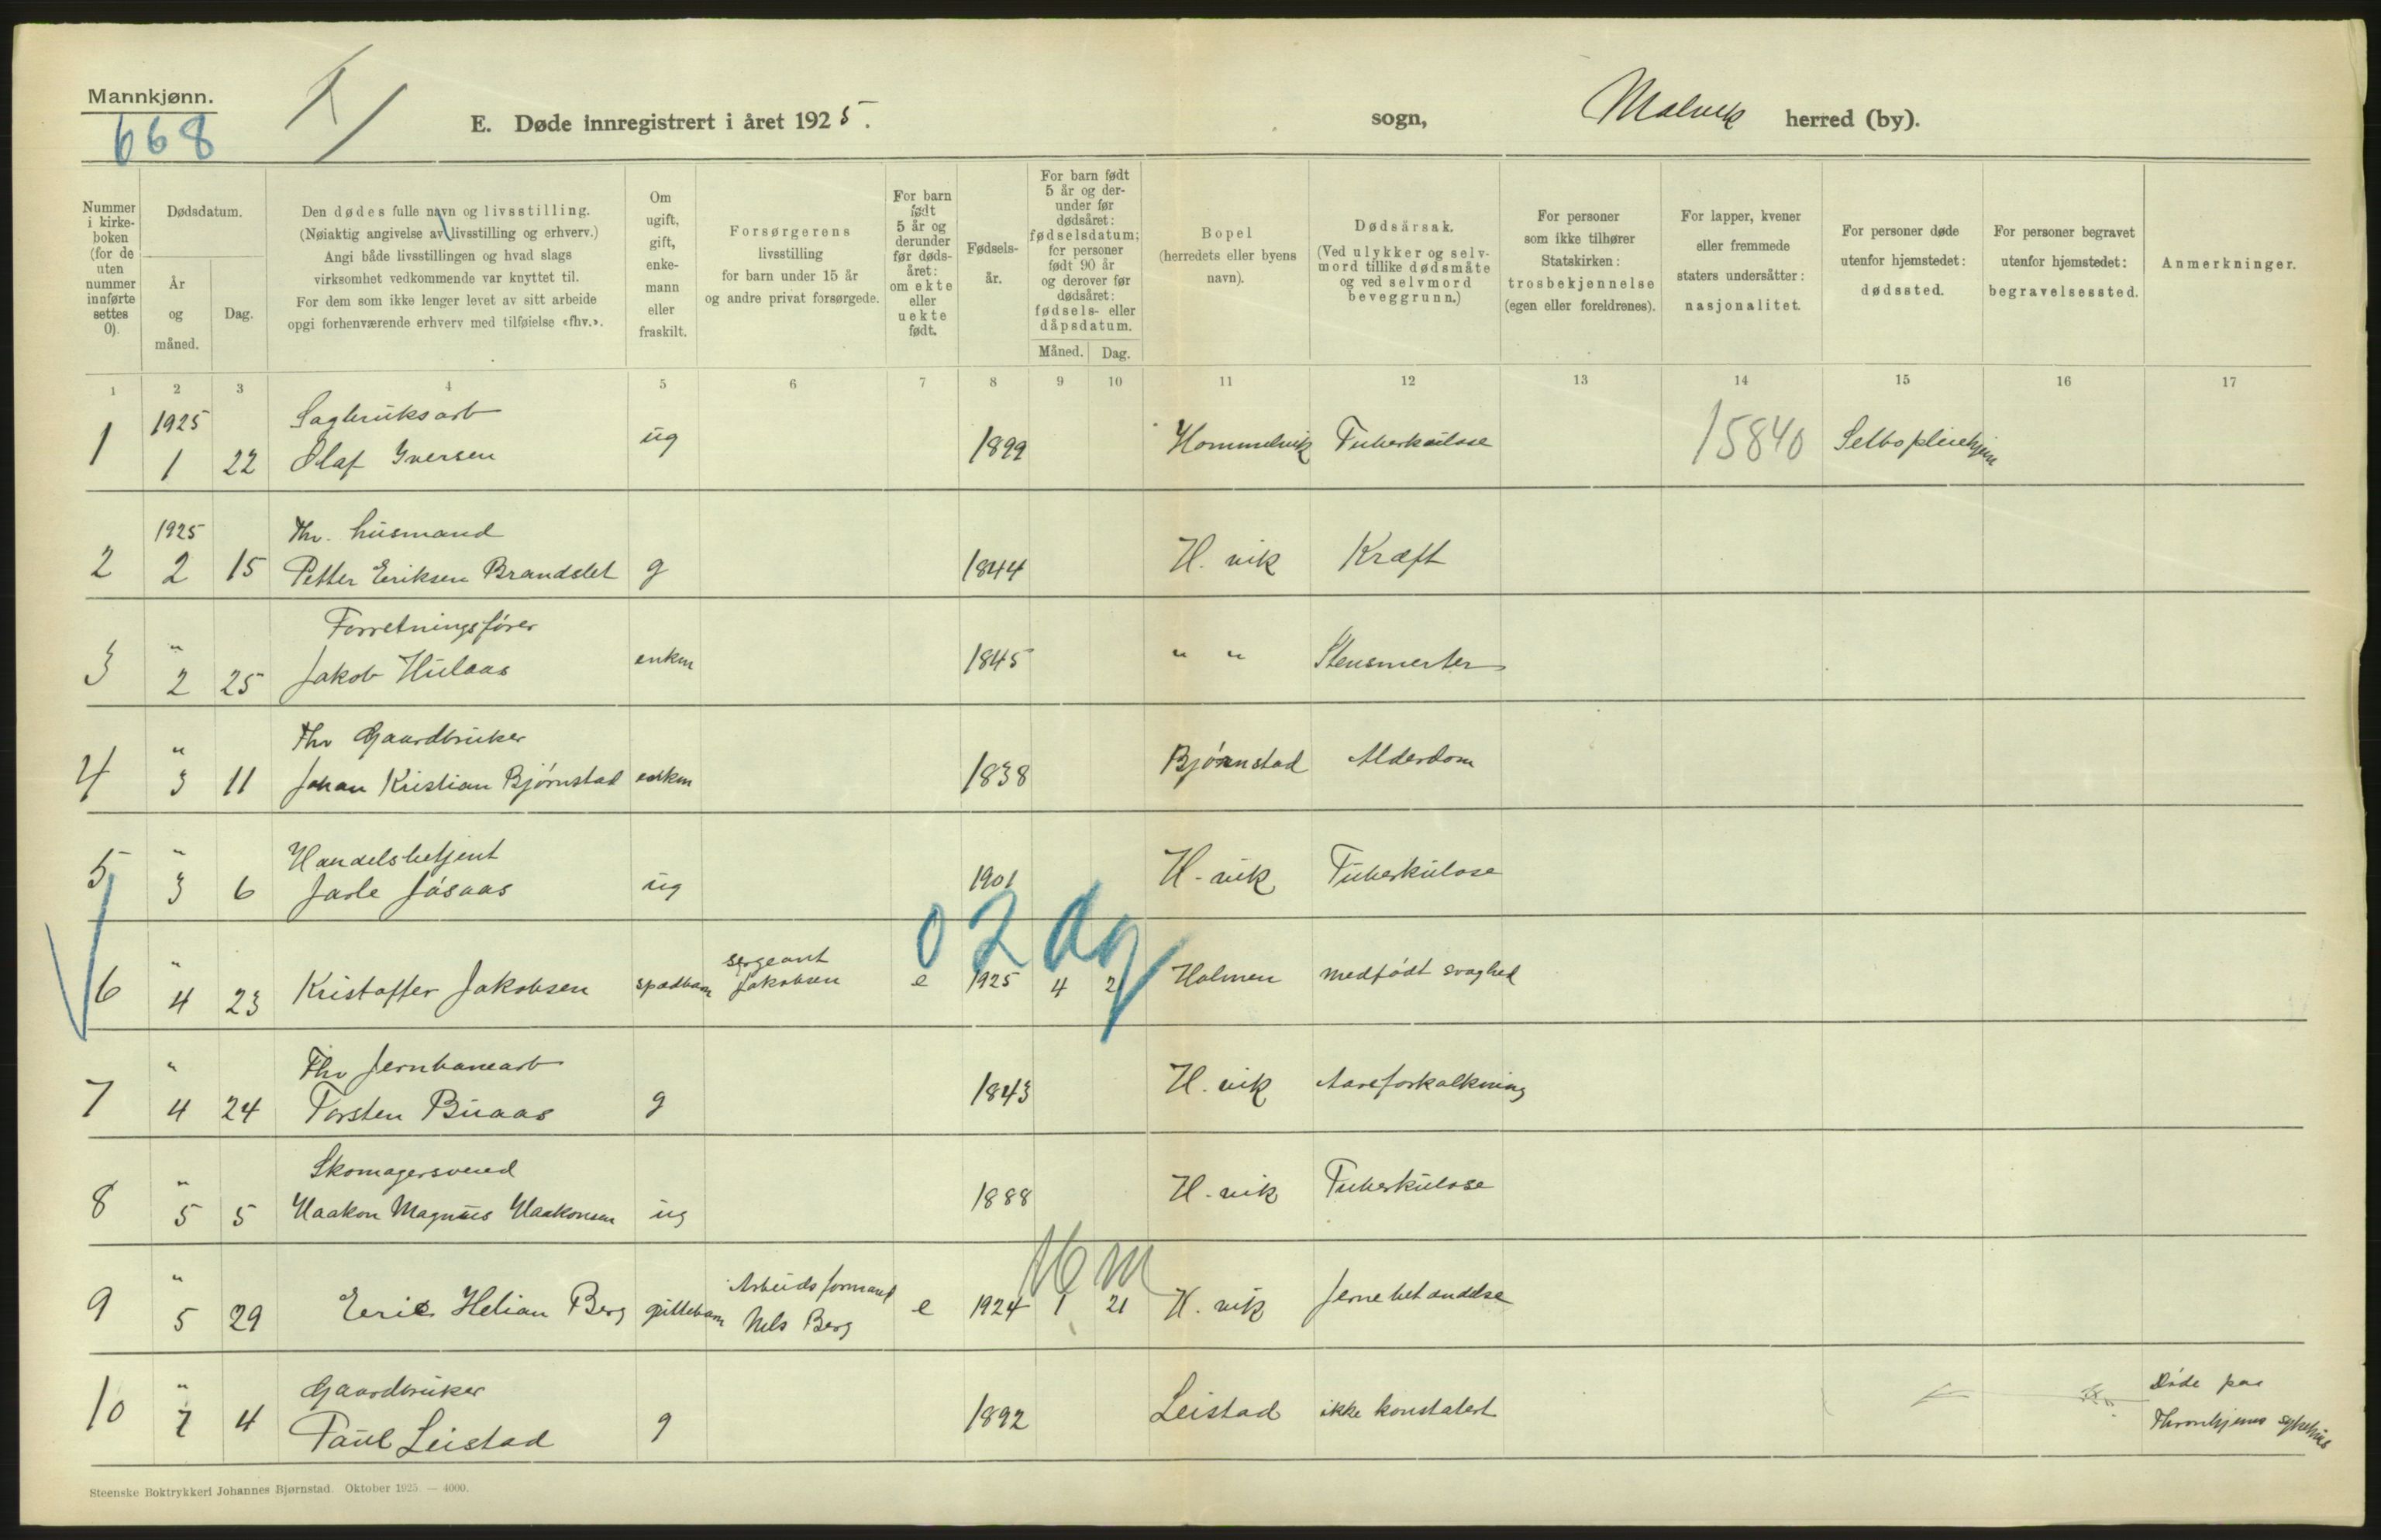 Mannkjønn.
668
E. Døde innregistrert i året 1925.
sogn,
Malvik herred (by).
Nummer i kirke- boken (for de uten nummer innførte settes 0).
Dødsdatum.
År og måned.
Dag.
Den dødes fulle navn og livsstilling.
(Nøiaktig angivelse av livsstilling og erhverv.)
Angi både livsstillingen og hvad slags
virksomhet vedkommende var knyttet til.
For dem som ikke lenger levet av sitt arbeide
opgi forhenværende erhverv med tilføielse «fhv.».
Om ugift, gift, enke- mann eller fraskilt.
Forsørgerens
livsstilling
for barn under 15 år
og andre privat forsørgede.
For barn født 5 år og derunder før døds- året: om ekte eller uekte født.
Fødsels- år.
For barn født 5 år og der- under før dødsåret: fødselsdatum; for personer født 90 år og derover før dødsåret: fødsels- eller dåpsdatum.
Måned. Dag.
Bopel
(herredets eller byens
navn).
Dødsårsak.
(Ved ulykker og selv-
mord tillike dødsmåte
og ved selvmord
beveggrunn.)
For personer
som ikke tilhører
Statskirken:
trosbekjennelse
(egen eller foreldrenes).
For lapper, kvener
eller fremmede
staters undersåtter:
nasjonalitet.
For personer døde
utenfor hjemstedet:
dødssted.
For personer begravet
utenfor hjemstedet:
begravelsessted.
Anmerkninger.
1 2 3 4 5 6 7 8 9 10 11 12 13 14 15 16 17
1925 Sagbruksarb
1 1 22 Olaf Iversen ug 1899 Hommelvik Tuberkulose 15840 Selbo pleiehjem
1925 Fhv. husmand
2 2 15 Petter Eriksen Brandslet g 1844 H. vik Kræft
" Forretningsfører
3 2 25 Jakob Hulaas enkm 1845 " " Stensmerter
" Fhv Gaardbruker
4 3 11 Johan Kristian Bjørnstad enkm 1838 Bjørnstad Alderdom
" Handelsbetjent
5 3 6 Jarle Jøsaas ug 1901 H. vik Tuberkulose
0 2 dg
" sergeant
6 4 23 Kristoffer Jakobsen spædbarn Jakobsen e 1925 4 2 Holmen medfødt svaghed
" Fhv Jernbanearb
7 4 24 Torsten Buaas g 1843 H. vik Aareforkalkning
" Skomagersvend
8 5 5 Haakon Magnus Haakonsen ug 1888 H. vik Tuberkulose
16 m
" Arbeidsformand
9 5 29 Eeric Helian Berg guttebarn Nels Berg e 1924 1 21 H. vik Jernebetændelse
" Gaardbruker Døde paa
10 7 4 Paul Leistad g 1892 Leistad ikke konstatert Thronhjems sykehus
Steenske Boktrykkeri Johannes Bjørnstad. Oktober 1925. — 4000.